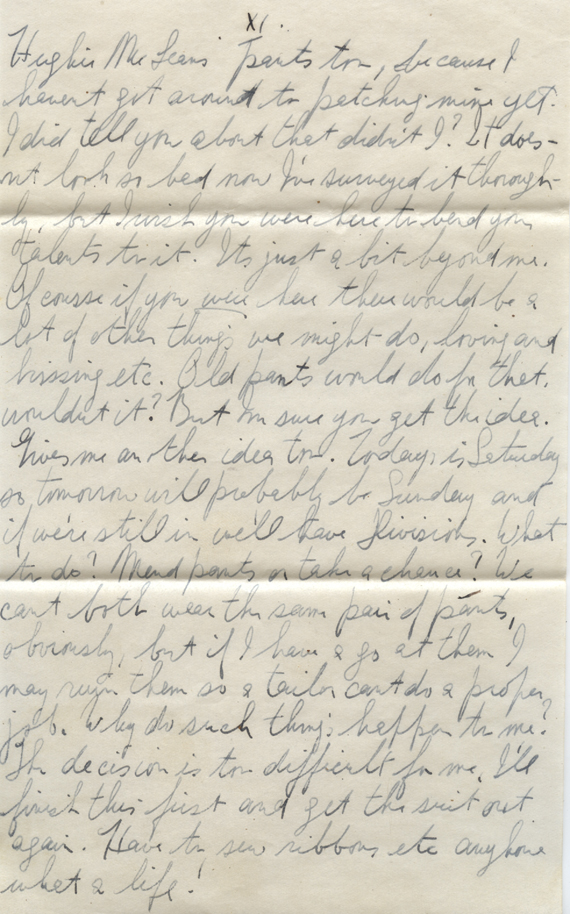 XI.
Hughie McLeans' pants too, because I
haven't got around to patching mine yet.
I did tell you about that didn't I? It does-
nt look so bad now I've surveyed it thorough-
ly, but I wish you were here to bend your
talents to it. Its just a bit beyond me.
Of course if you were here there would be a
lot of other things we might do, loving and
kissing etc. Old pants would do for that,
wouldnt it? But Im sure you get the idea.
Gives me another idea too. Today is Saturday
so tomorrow will probably be Sunday and
if we're still in we'll have Divisions. What
to do? Mend pants or take a chance? We
cant both wear the same pair of pants,
obviously, but if I have a go at them I
may ruin them so a tailor cant do a proper
job. Why do such things happen to me?
The decision is too difficult for me. I'll
finish this first and get the suit out
again. Have to sew ribbons etc anyhow
what a life!